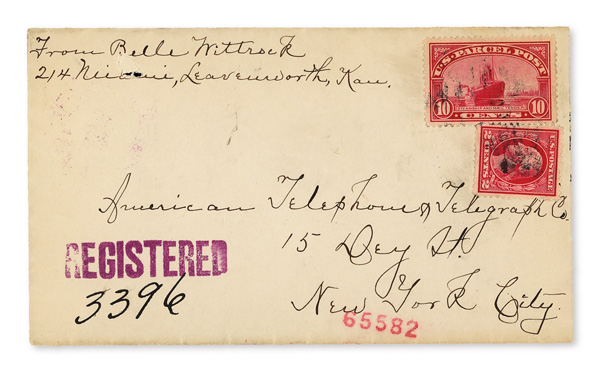 From Belle Wittrock
214 Miami, Leavenworth, Kan.
U.S. PARCEL POST
10 10
CENTS
U.S. POSTAGE
2 CENTS 2
American Telephone & Telegraph Co.
15 Dey St.
New York City.
REGISTERED
3396
65582